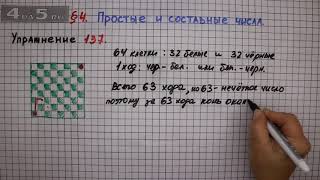 4 на 5
§4. Простые и составные числа.
Упражнение 137.
64 клетки : 32 белые и 32 чёрные
1 ход: чер - бел. или бел. - черн.
Всего 63 хода, но 63 - нечётное число
поэтому за 63 хода конь окаж